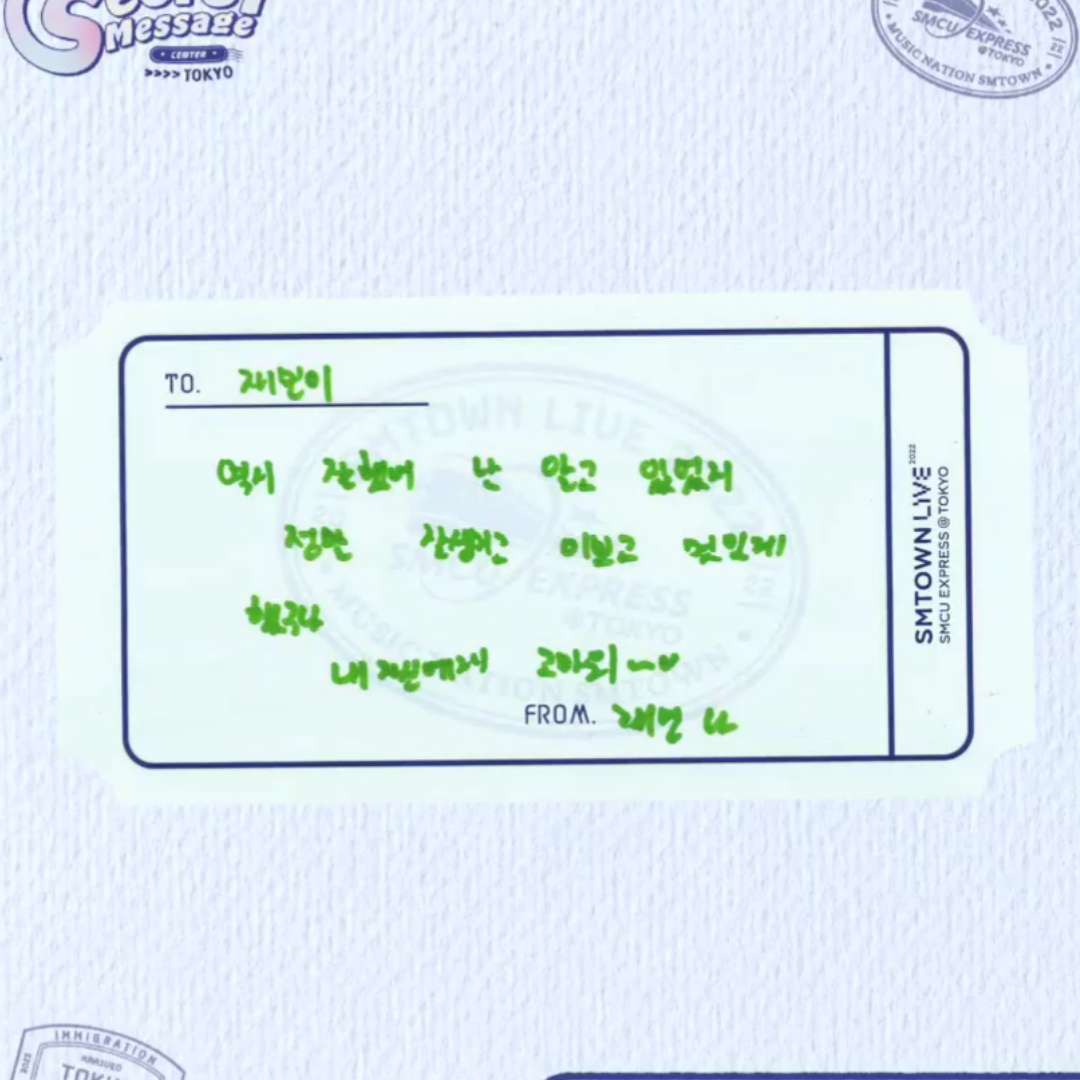 Message
CENTER
>>>> TOKYO
2022
SMCU EXPRESS
@TOKYO
MUSIC NATION SMTOWN
TO. 재민이
역시 잘했어 난 알고 있었지
정말 잘생기고 이쁘고 멋있게
했구나
내 자신에게 고마워~♡
FROM. 재민 나
SMTOWN LIVE 2022
SMCU EXPRESS @TOKYO
SMTOWN LIVE 2022
SMCU EXPRESS
@TOKYO
MUSIC NATION SMTOWN
IMMIGRATION